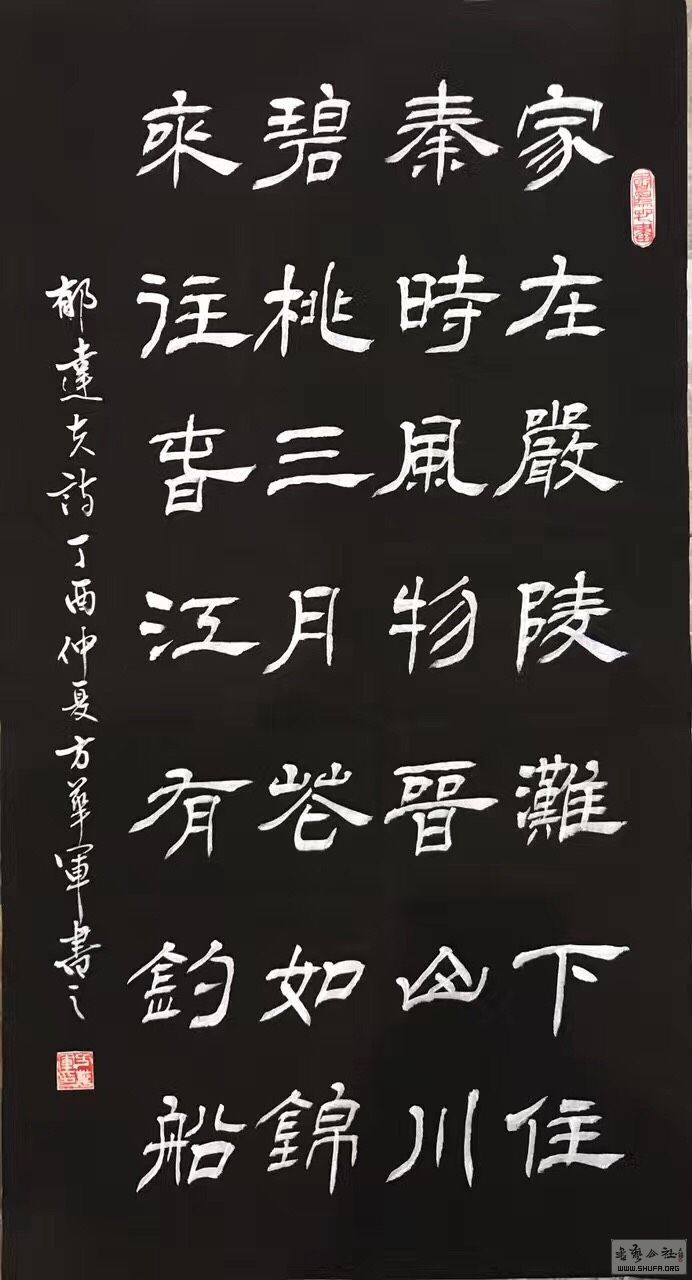 家在嚴陵灘下住
秦時風物晉山川
碧桃三月花如錦
來往春江有釣船
郁達夫詩丁酉仲夏方華軍書之
書藝公社
WWW.SHUFA.ORG